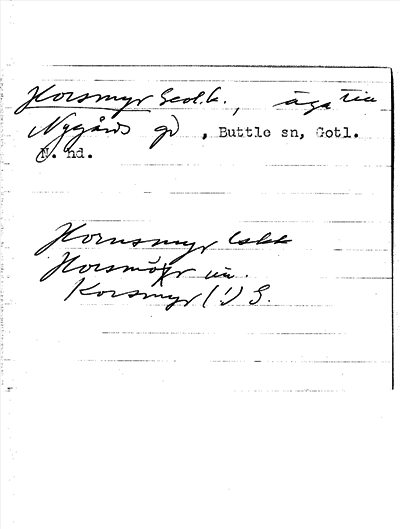 Horsmyr Geol.k., äga till
Nygårds gd , Buttle sn, Gotl.
N. hd.
Hornsmyr
Horsmöjr
Korsmyr (!) G.